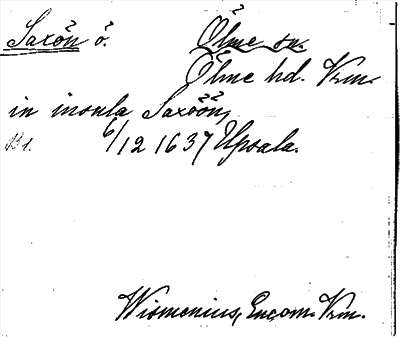 Saxön ö. Ölme sn.
Ölme hd. Vrm.
in insula Saxöön,
B 1. 6/12 1637 Upsala.
Wismenius, Encom. Vrm.